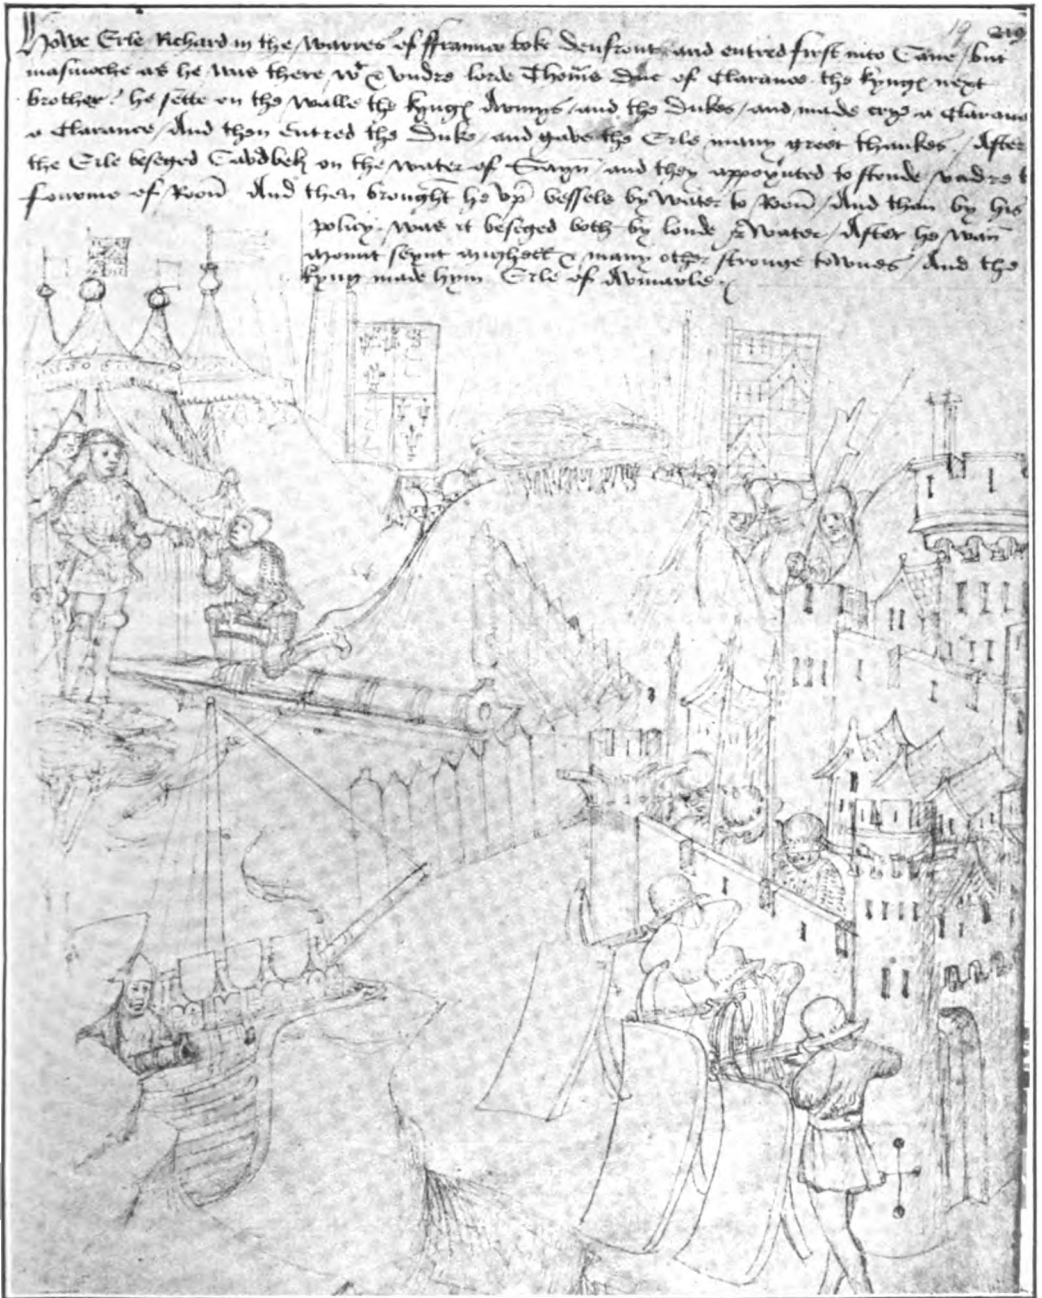 19 219
Howe Erle Richard in the warres of ffraunce toke Denfront and entred first into Cane / but
masmoche as he was there wt & undre lorde Thomas Duc of Clarance the kyngs next
brother. he sette on the walle the kyngs Armys / and the Dukes / and made crye a Clarance
a Clarance / And then entred the Duke / and gave the Erle many greet thankes. / After
the Erle beseged Cawdbek on the water of Sayn / and they appoynted to stonde undre t
fourme of Roon And then brought he up vessels by water to Roon / And than by his
policy. was it beseged both by londe & Water / After he wan
Mount seynt Mighell & many other stronge townes / And the
kyng made hym Erle of Awmarle.